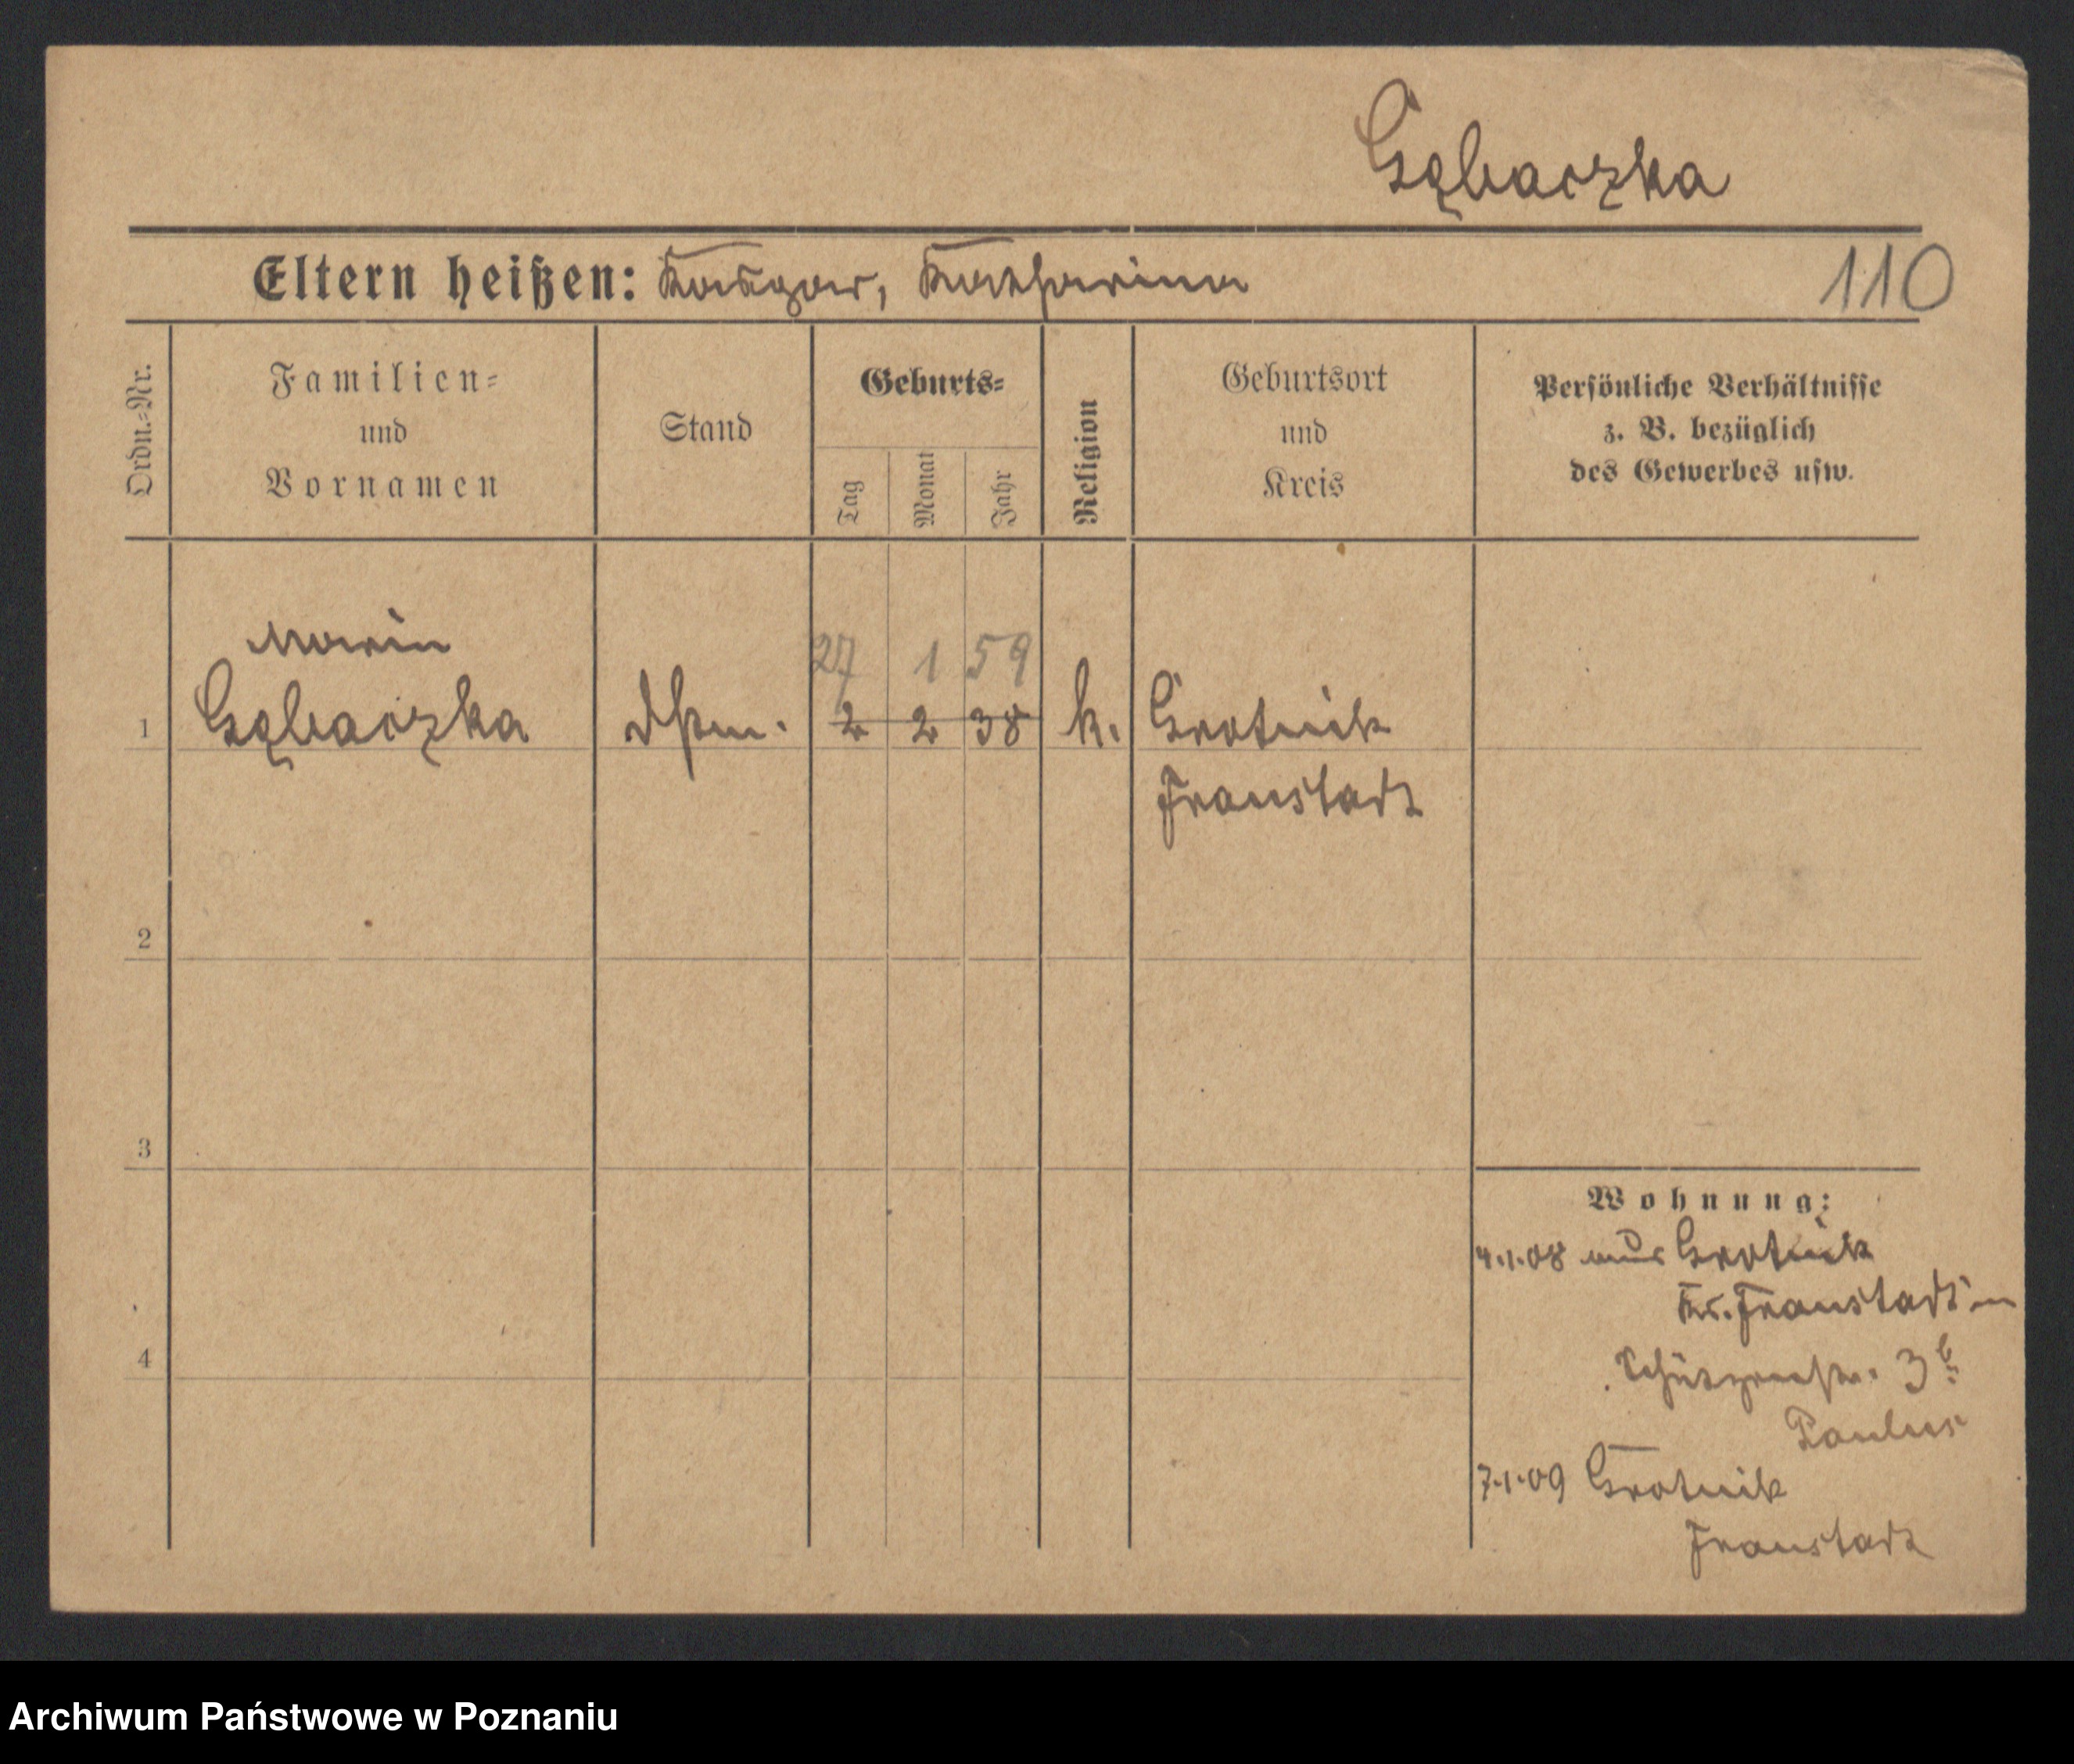 Gąbaczka
Eltern heißen: Kaspar, Katharina
110
Ordn.-Nr.
Familien-
und
Vornamen
Stand
Geburts-
Tag
Monat
Jahr
Religion
Geburtsort
und
Kreis
Persönliche Verhältnisse
z. B. bezüglich
des Gewerbes usw.
Maria
27 1 59
1 Gąbaczka 2 2 38 k. Grotnik
Fraustadt
2
3
4
Wohnung:
4.1.08 aus Grotnik
Kr. Fraustadt
Schützenstr. 3b
Paulus
7.1.09 Grotnik
Fraustadt
Archiwum Państwowe w Poznaniu